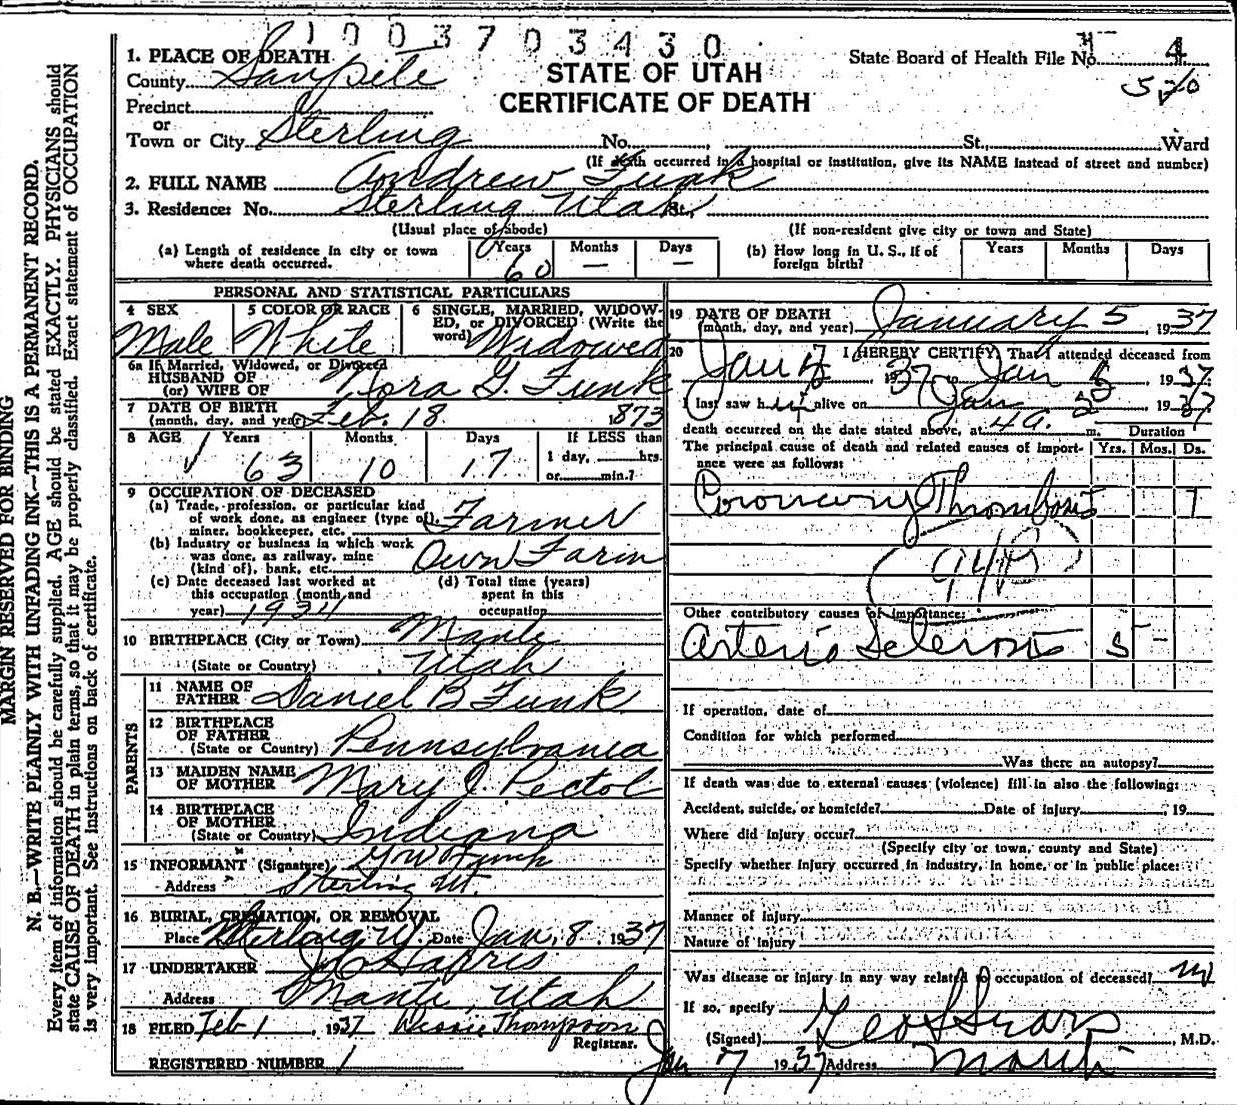 1003703430
1. PLACE OF DEATH
County Sanpete
Precinct
or
Town or City Sterling No. St., Ward
STATE OF UTAH
CERTIFICATE OF DEATH
State Board of Health File No. 4
520
(If death occurred in a hospital or institution, give its NAME instead of street and number)
2. FULL NAME Andrew Funk
3. Residence: No. Sterling Utah St.,
(Usual place of abode) (If non-resident give city or town and State)
(a) Length of residence in city or town where death occurred. Years 60 Months — Days —
(b) How long in U. S., if of foreign birth? Years Months Days
PERSONAL AND STATISTICAL PARTICULARS
4 SEX Male
5 COLOR OR RACE White
6 SINGLE, MARRIED, WIDOWED, or DIVORCED (Write the word) Widowed
6a If Married, Widowed, or Divorced
HUSBAND OF
(or) WIFE OF Nora G. Funk
7 DATE OF BIRTH
(month, day, and year) Feb. 18 1873
8 AGE Years 63 Months 10 Days 17 If LESS than 1 day, hrs. or min.?
9 OCCUPATION OF DECEASED
(a) Trade, profession, or particular kind of work done, as engineer (type of), miner, bookkeeper, etc. Farmer
(b) Industry or business in which work was done, as railway, mine (kind of), bank, etc. Own Farm
(c) Date deceased last worked at this occupation (month and year) 1934
(d) Total time (years) spent in this occupation
10 BIRTHPLACE (City or Town) Manti
(State or Country) Utah
PARENTS
11 NAME OF FATHER Daniel B Funk
12 BIRTHPLACE OF FATHER
(State or Country) Pennsylvania
13 MAIDEN NAME OF MOTHER Mary J. Pectol
14 BIRTHPLACE OF MOTHER
(State or Country) Indiana
15 INFORMANT (Signature) Funk
Address Sterling Ut.
16 BURIAL, CREMATION, OR REMOVAL
Place Sterling, U. Date Jan. 8, 1937
17 UNDERTAKER Harris
Address Manti, Utah
18 FILED Feb 1, 1937 Dessie Thompson
Registrar.
REGISTERED NUMBER 1
19 DATE OF DEATH
(month, day, and year) January 5, 1937
20 I HEREBY CERTIFY, That I attended deceased from
Jan 1937 to Jan 5 1937
I last saw him alive on Jan 1937
death occurred on the date stated above, at 4 a. m. Duration
The principal cause of death and related causes of importance were as follows: Yrs. Mos. Ds.
Coronary Thrombosis 1
94B
Other contributory causes of importance:
Arterio Sclerosis 5 -
If operation, date of
Condition for which performed
Was there an autopsy?
If death was due to external causes (violence) fill in also the following:
Accident, suicide, or homicide? Date of injury , 19
Where did injury occur?
(Specify city or town, county and State)
Specify whether injury occurred in industry, in home, or in public place:
Manner of Injury
Nature of Injury
Was disease or injury in any way related to occupation of deceased?
If so, specify
(Signed) Geo L Sears, M.D.
Jan 7 1937 Address Manti
MARGIN RESERVED FOR BINDING
N. B.—WRITE PLAINLY WITH UNFADING INK—THIS IS A PERMANENT RECORD.
Every item of information should be carefully supplied. AGE should be stated EXACTLY. PHYSICIANS should
state CAUSE OF DEATH in plain terms, so that it may be properly classified. Exact statement of OCCUPATION
is very important. See instructions on back of certificate.